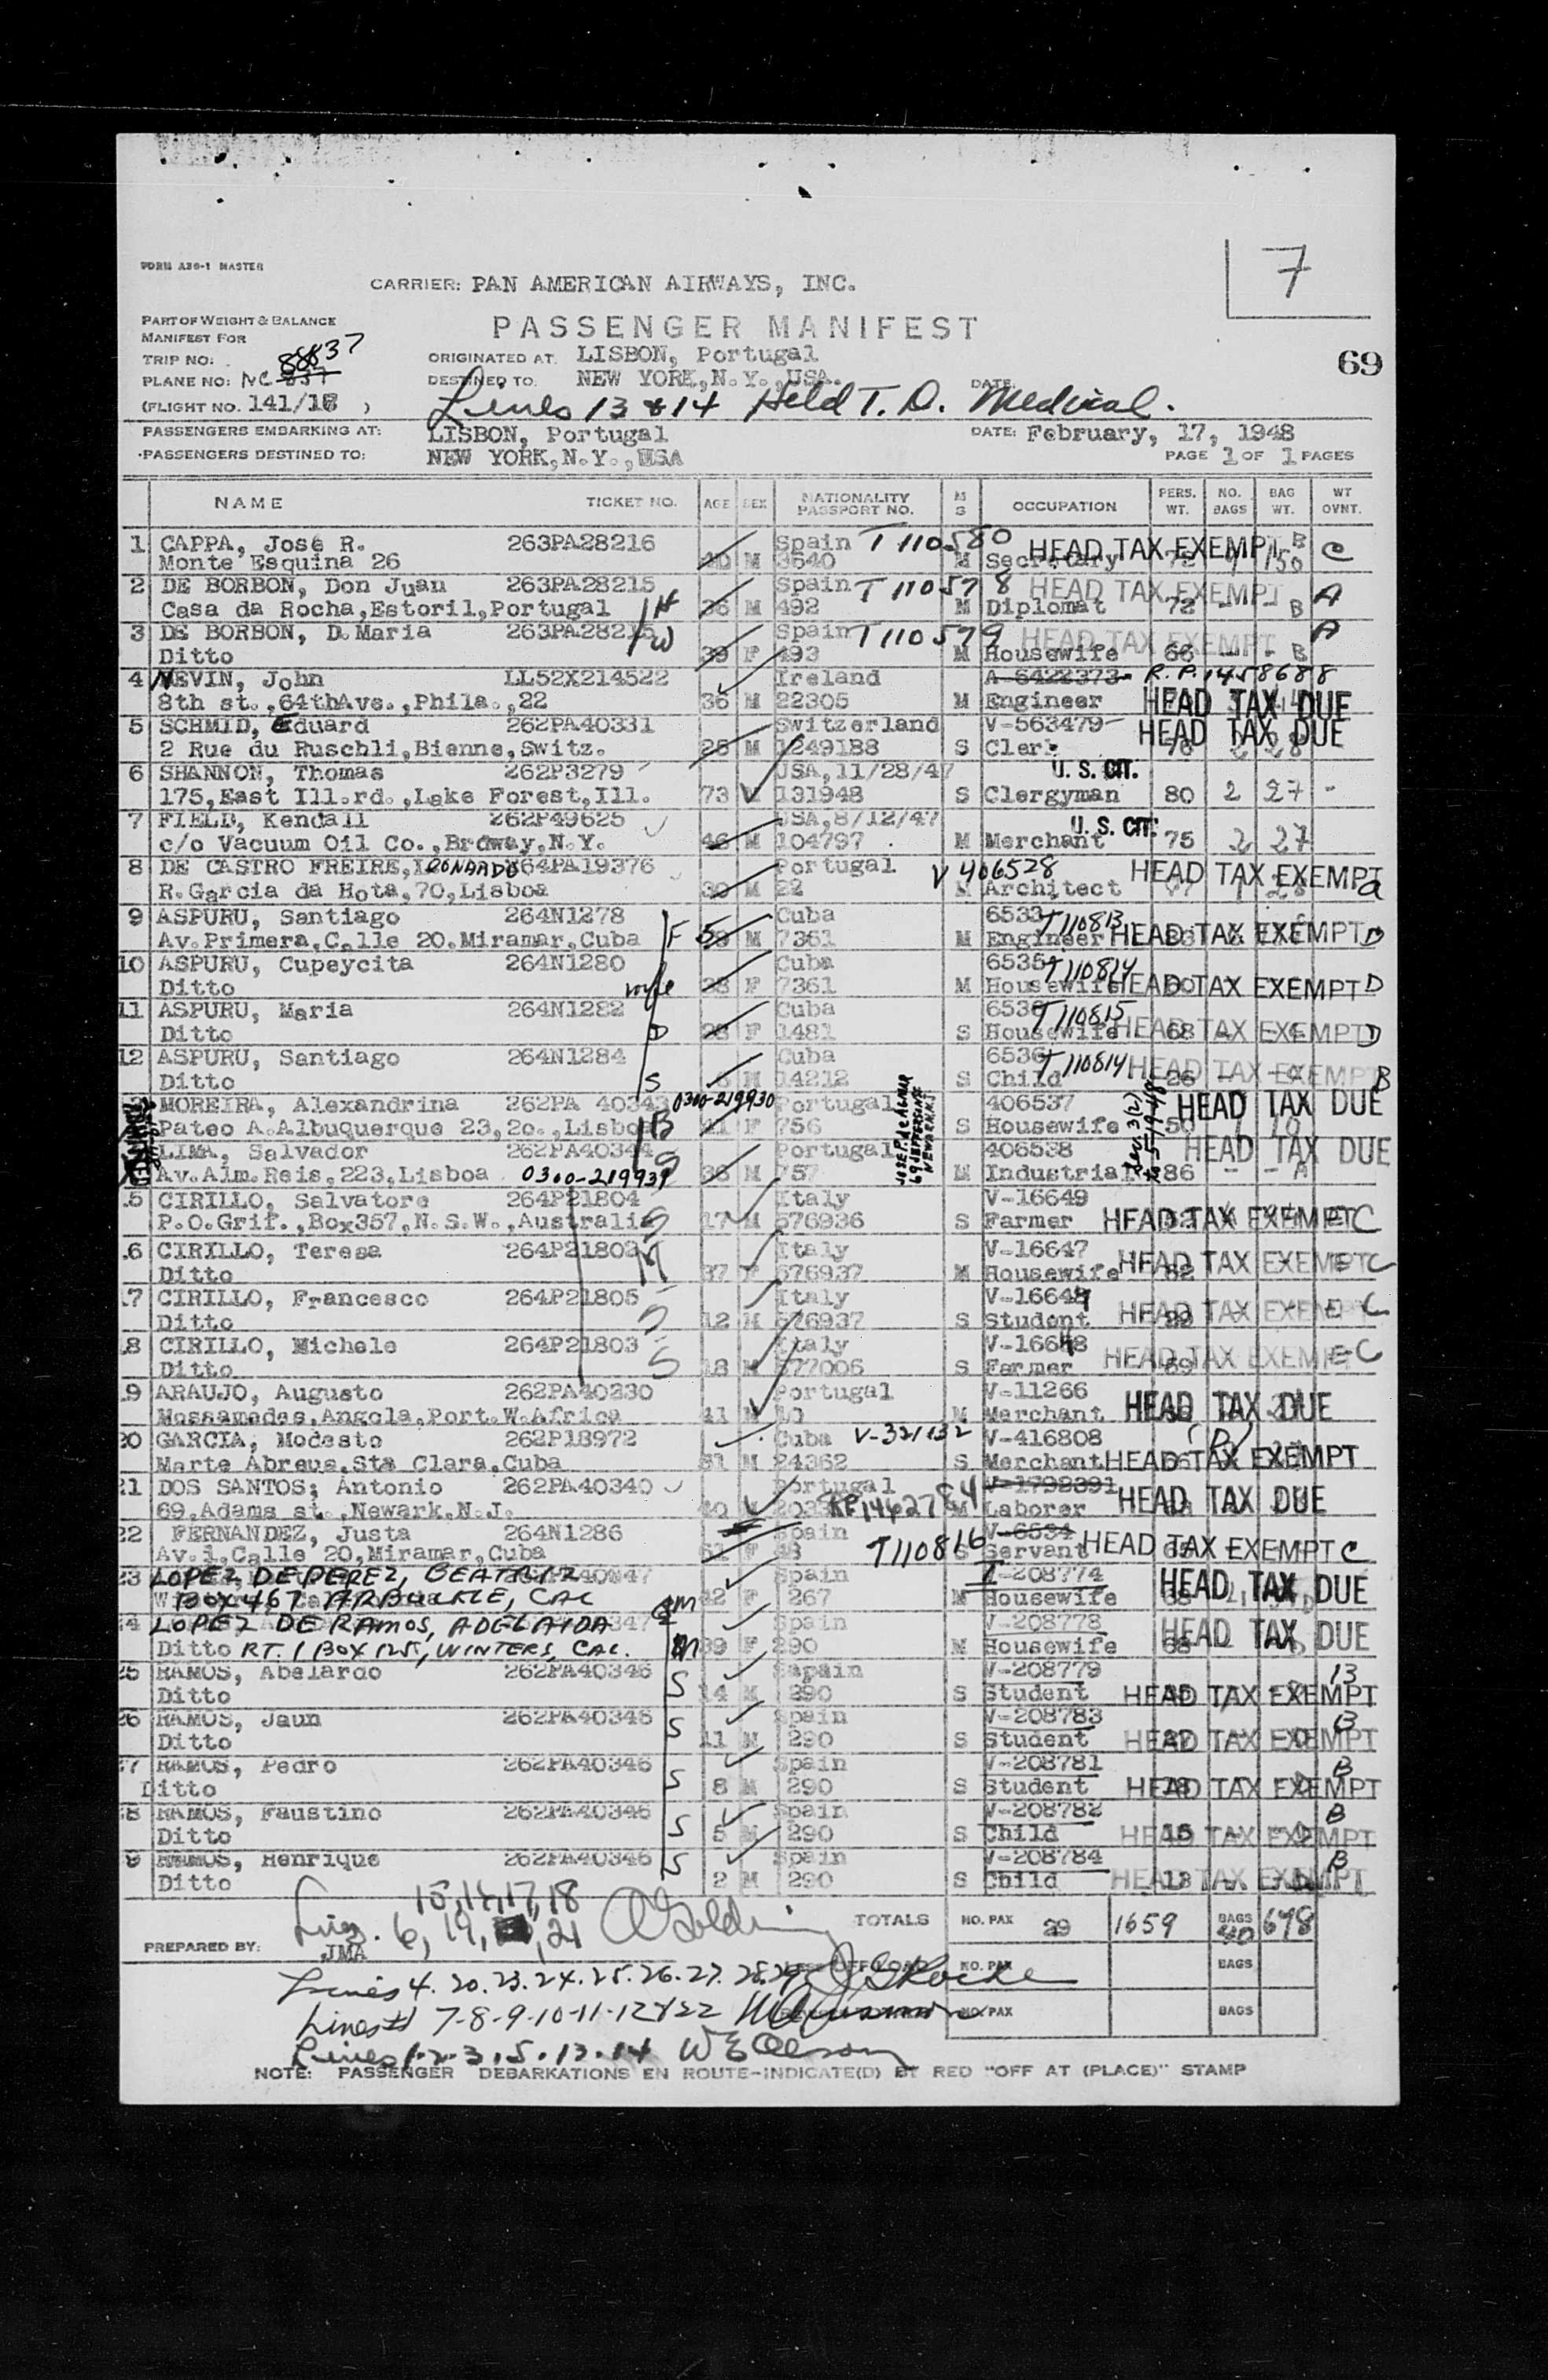 FORM A30-1 MASTER
7
CARRIER: PAN AMERICAN AIRWAYS, INC.
PART OF WEIGHT & BALANCE
MANIFEST FOR
PASSENGER MANIFEST
TRIP NO: 88837
ORIGINATED AT: LISBON, Portugal
69
PLANE NO: NC 837
DESTINED TO: NEW YORK,N.Y.,USA.
DATE:
(FLIGHT NO. 141/16 )
Lines 13 & 14 Held T.D. Medical.
PASSENGERS EMBARKING AT: LISBON, Portugal
DATE: February, 17, 1948
PASSENGERS DESTINED TO: NEW YORK,N.Y.,USA
PAGE 1 OF 1 PAGES
NAME TICKET NO. AGE SEX NATIONALITY PASSPORT NO. M S OCCUPATION PERS. WT. NO. BAGS BAG WT. WT OVNT.
1 CAPPA, José R. 263PA28216 Spain T 110580 HEAD TAX EXEMPT B
Monte Esquina 26 40 M 3640 M Secretary 150 C
2 DE BORBON, Don Juan 263PA28215 Spain T 110578 HEAD TAX EXEMPT A
Casa da Rocha,Estoril,Portugal H 36 M 492 M Diplomat 72 - - B
3 DE BORBON, D.Maria 263PA28215 Spain T 110579 HEAD TAX EXEMPT A
Ditto W 39 F 493 M Housewife 66 - - B
4 NEVIN, John LL52X214522 Ireland A-6422373- R.P. 1458688
8th st.,64thAve.,Phila.,22 36 M 22305 M Engineer HEAD TAX DUE
5 SCHMID, Eduard 262PA40331 Switzerland V-563479- HEAD TAX DUE
2 Rue du Ruschli,Bienne,Switz. 25 M 1249188 S Clerk 28
6 SHANNON, Thomas 262P3279 USA,11/28/47 U. S. CIT.
175,East Ill.rd.,Lake Forest,Ill. 73 131948 S Clergyman 80 2 27 -
7 FIELD, Kendall 262P49625 USA,8/12/47 U. S. CIT.
c/o Vacuum Oil Co.,Brdway,N.Y. 46 M 104797 M Merchant 75 2 27
8 DE CASTRO FREIRE,LEONARDO 264PA19376 Portugal V 406528 HEAD TAX EXEMPT
R.Garcia da Hota,70,Lisboa 30 M 22 M Architect a
9 ASPURU, Santiago 264N1278 Cuba 6533 T110813
Av.Primera,Calle 20.Miramar,Cuba F 59 M 7361 M Engineer HEAD TAX EXEMPT D
10 ASPURU, Cupeycita 264N1280 Cuba 6535 T110814
Ditto wife F 7361 M Housewife HEAD TAX EXEMPT D
11 ASPURU, Maria 264N1282 Cuba T110815
Ditto D F 1481 S Housewife HEAD TAX EXEMPT 68 D
12 ASPURU, Santiago 264N1284 Cuba 6536 T110814 HEAD TAX EXEMPT
Ditto S M 14212 S Child 26 B
MOREIRA, Alexandrina 262PA 40343 0300-219930 Portugal 406537 HEAD TAX DUE
Pateo A.Albuquerque 23,2o.,Lisboa F 756 S Housewife 50
LIMA, Salvador 262PA40344 Portugal 406538 HEAD TAX DUE
Av.Alm.Reis,223,Lisboa 0300-219931 36 M 757 M Industrial 86 - -
JOSE P. de AGUIAR
NEWARK N.J.
5 CIRILLO, Salvatore 264P21804 Italy V-16649
P.O.Grif.,Box357,N.S.W.,Australia S 17 M 576936 S Farmer HEAD TAX EXEMPT C
6 CIRILLO, Teresa 264P21803 Italy V-16647 HEAD TAX EXEMPT C
Ditto M 37 F 576937 M Housewife 82
7 CIRILLO, Francesco 264P21805 Italy V-16649 HEAD TAX EXEMPT C
Ditto S 12 M 576937 S Student
8 CIRILLO, Michele 264P21803 Italy V-16648 HEAD TAX EXEMPT C
Ditto S 18 M 577006 S Farmer 69
9 ARAUJO, Augusto 262PA40230 Portugal V-11266 HEAD TAX DUE
Mossamedes,Angola,Port.W.Africa 41 M M Merchant
20 GARCIA, Modesto 262P18972 Cuba V-321132 V-416808
Marte Abreus,Sta Clara,Cuba M 24362 S Merchant HEAD TAX EXEMPT
21 DOS SANTOS; Antonio 262PA40340 Portugal V-1792391 HEAD TAX DUE
69,Adams st.,Newark,N.J. RP1462784 M Laborer
22 FERNANDEZ, Justa 264N1286 Spain V-6534 HEAD TAX EXEMPT C
Av.1,Calle 20,Miramar,Cuba 61 F T110816 S Servant
23 LOPEZ DE PEREZ, BEATRIZ Spain V-208774 HEAD TAX DUE
BOX 467 ARBUCKLE, CAL GM F 267 M Housewife
4 LOPEZ DE RAMOS, ADELAIDA Spain V-208778 HEAD TAX DUE
Ditto RT. 1 BOX 125, WINTERS, CAL. M 39 F 290 M Housewife 68
25 RAMOS, Abelardo 262PA40346 Sapain V-208779 B
Ditto S 14 M 290 S Student HEAD TAX EXEMPT
26 RAMOS, Jaun 262PA40346 Spain V-208783 B
Ditto S 11 M 290 S Student HEAD TAX EXEMPT
7 RAMOS, Pedro 262PA40346 Spain V-208781 B
Ditto S 8 M 290 S Student HEAD TAX EXEMPT
8 RAMOS, Faustino 262PA40346 Spain V-208782 B
Ditto S 5 M 290 S Child 15 HEAD TAX EXEMPT
9 RAMOS, Henrique 262PA40346 Spain V-208784 B
Ditto S 2 M 290 S Child 13 HEAD TAX EXEMPT
15,16,17,18
Lines. 6, 19, 21
TOTALS NO. PAX 29 1659 BAGS 40 698
PREPARED BY: JMA
Lines 4. 20. 23. 24. 25. 26. 27. 28. 29 NO. PAX BAGS
Lines# 7-8-9-10-11-12 & 22 NO. PAX BAGS
Lines 1.2.3.5.13.14 W E Olson
NOTE: PASSENGER DEBARKATIONS EN ROUTE-INDICATE(D) BY RED "OFF AT (PLACE)" STAMP